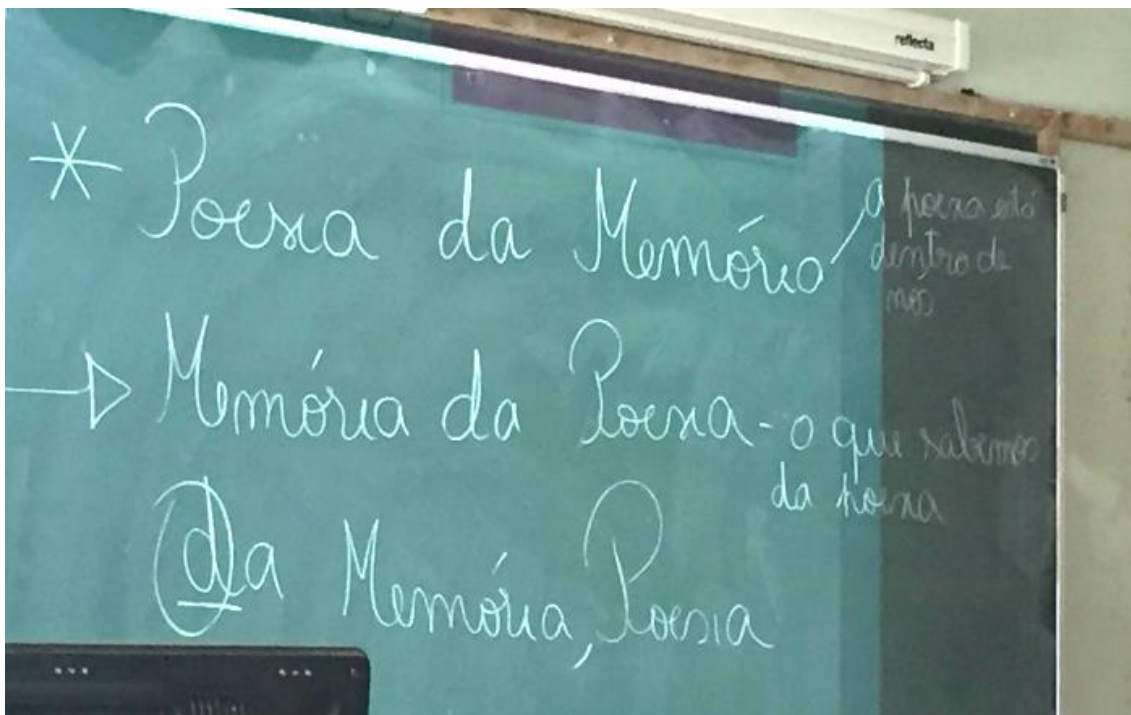 reflecta
* Poesia da Memória
a poesia está
dentro de
nós
→ Memória da Poesia - o que sabemos
da poesia
da Memória, Poesia